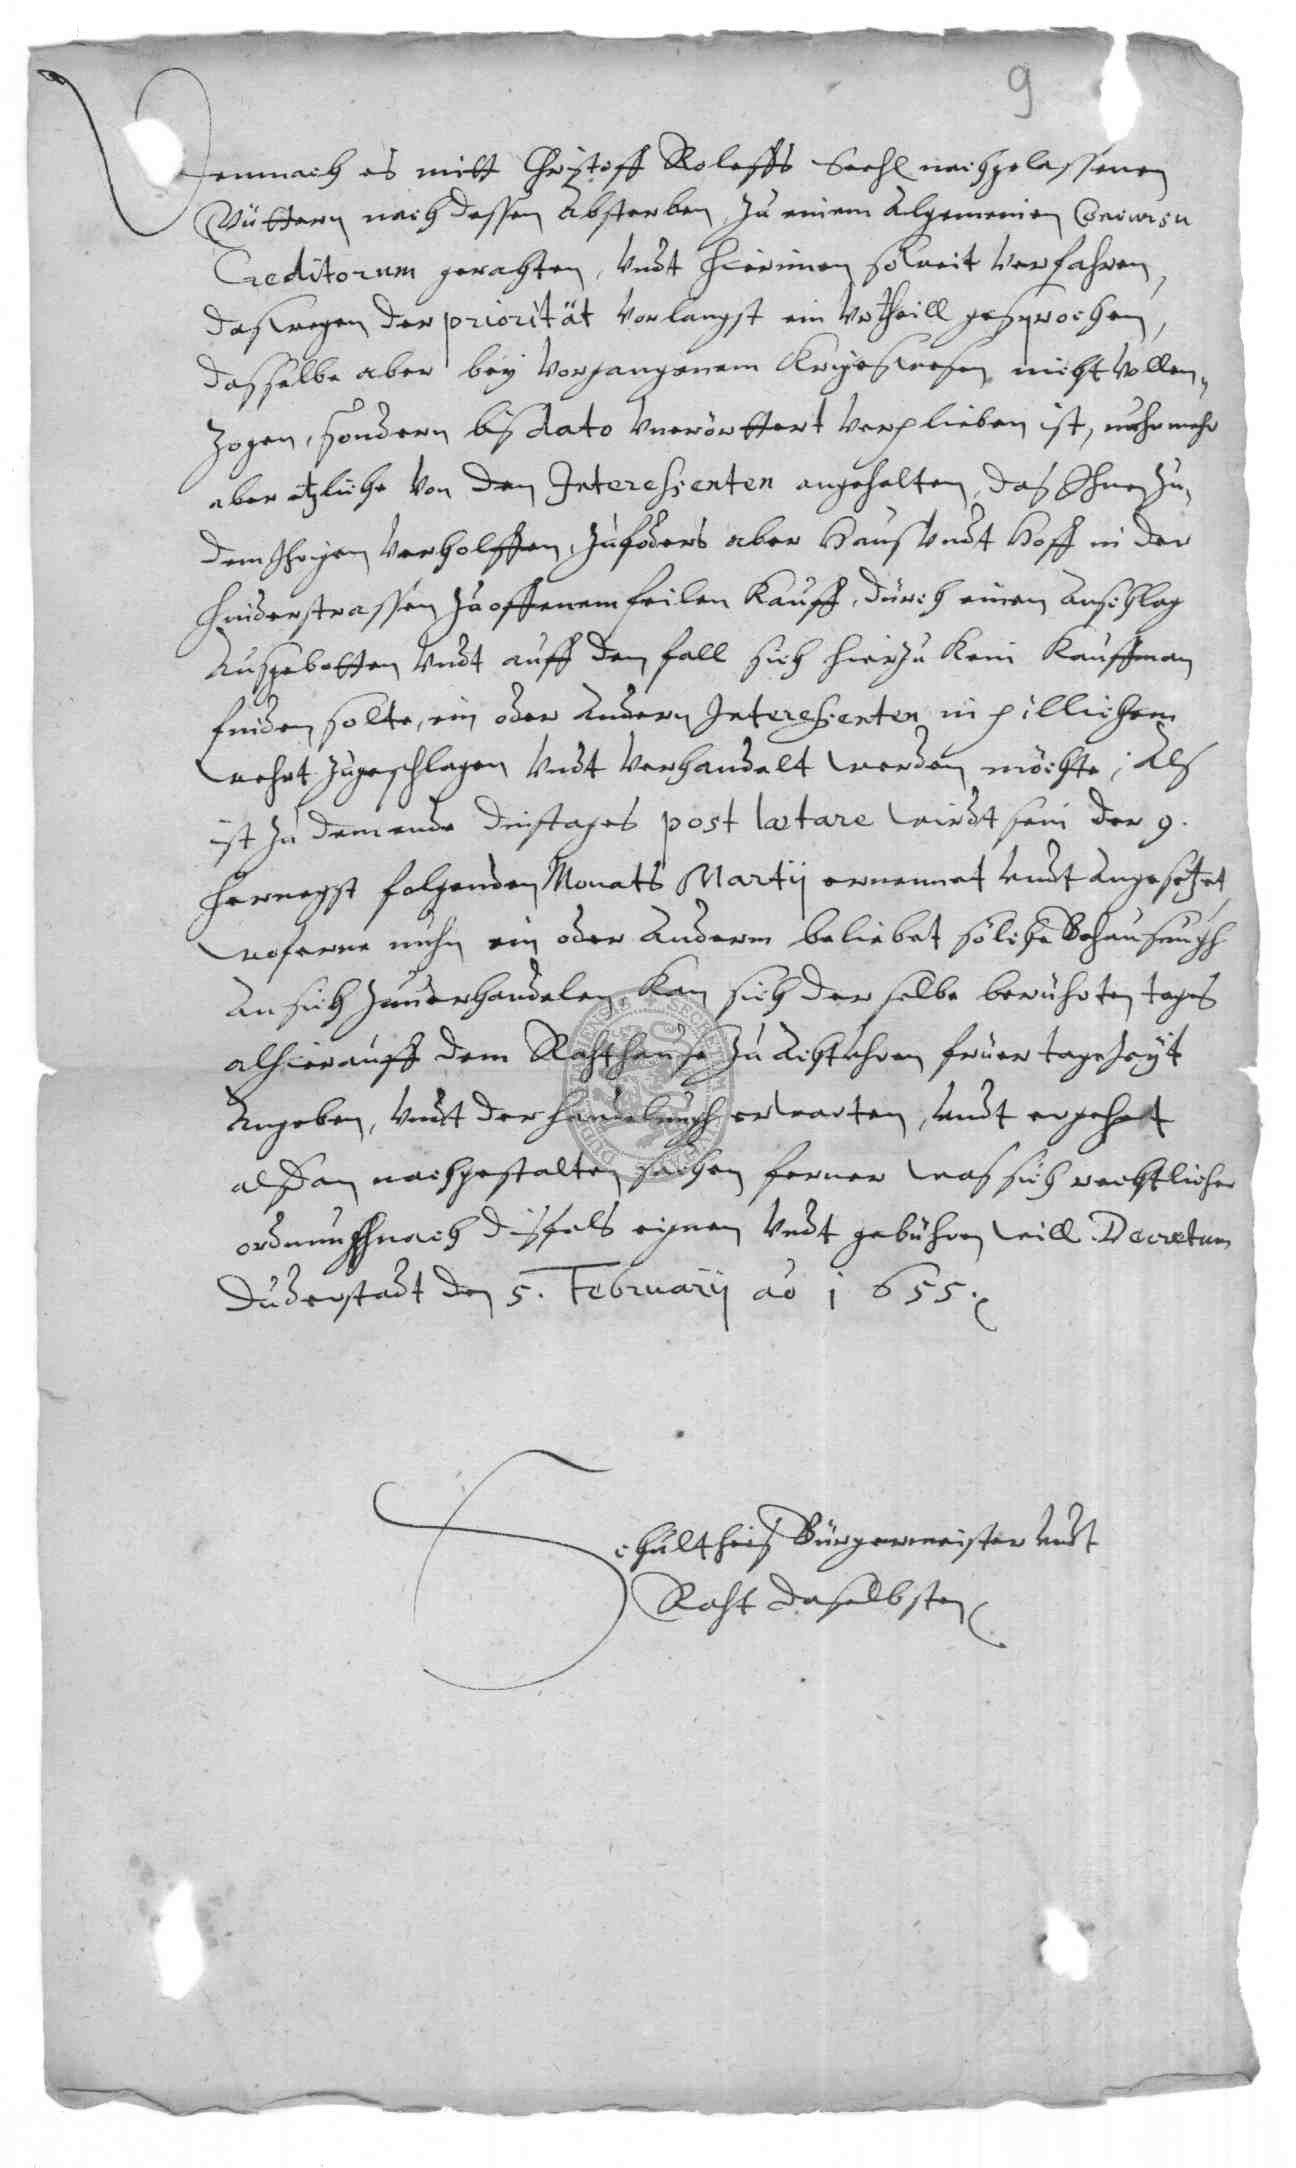 9
Demnach es mitt Christoff Roleffs Seehl nachgelassenen
Güttern nach dessen Absterben, zu einem Algemeinen Concursu
Creditorum gerahten, Vndt hierinnen so weit Verfahren,
das wegen der priorität Vorlangst ein Vrtheill gesprochen,
dasselbe aber bey Vorgangenem Krigeswesen nicht Vollen-
zogen, sondern bis dato Vnerörttert Verplieben ist, nuhnmehr
aber etzliche Von den Interessenten angehalten, das Ihnen zu
dem Ihrigen Verholffen, zufoders aber Haus Vndt Hoff in der
Hinderstrassen zu offenem feilen Kauff, durch einen Anschlag
Ausgebotten Vndt auff den fall sich hierzu Kein Kauffman
finden solte, ein oder Andern Interessenten in pillichem
wehrt zugeschlagen Vndt Verhandelt werden möchte; Als
ist zu dem ende dinstages post lætare wirdt sein der 9.
hernegst folgenden Monats Martij ernennet Vndt Angesetzet,
woferne nuhn ein oder Anderm beliebet solche Behausungh
An sich zuuerhandelen Kan sich der selbe berührten tages
alhier auff dem Rahthause zu Acht uhren früer tagezeyt
Angeben, Vndt der handelungh erwarten, Vndt ergehet
alsdan nach gestalten sachen ferner was sich rechtlicher
ordnungh nach disfals eignen Vndt gebühren will. Decretum
Duderstadt den 5. Februarij ao 1655.
Schultheis Bürgermeister Vndt
Raht daselbsten
SECRETUM